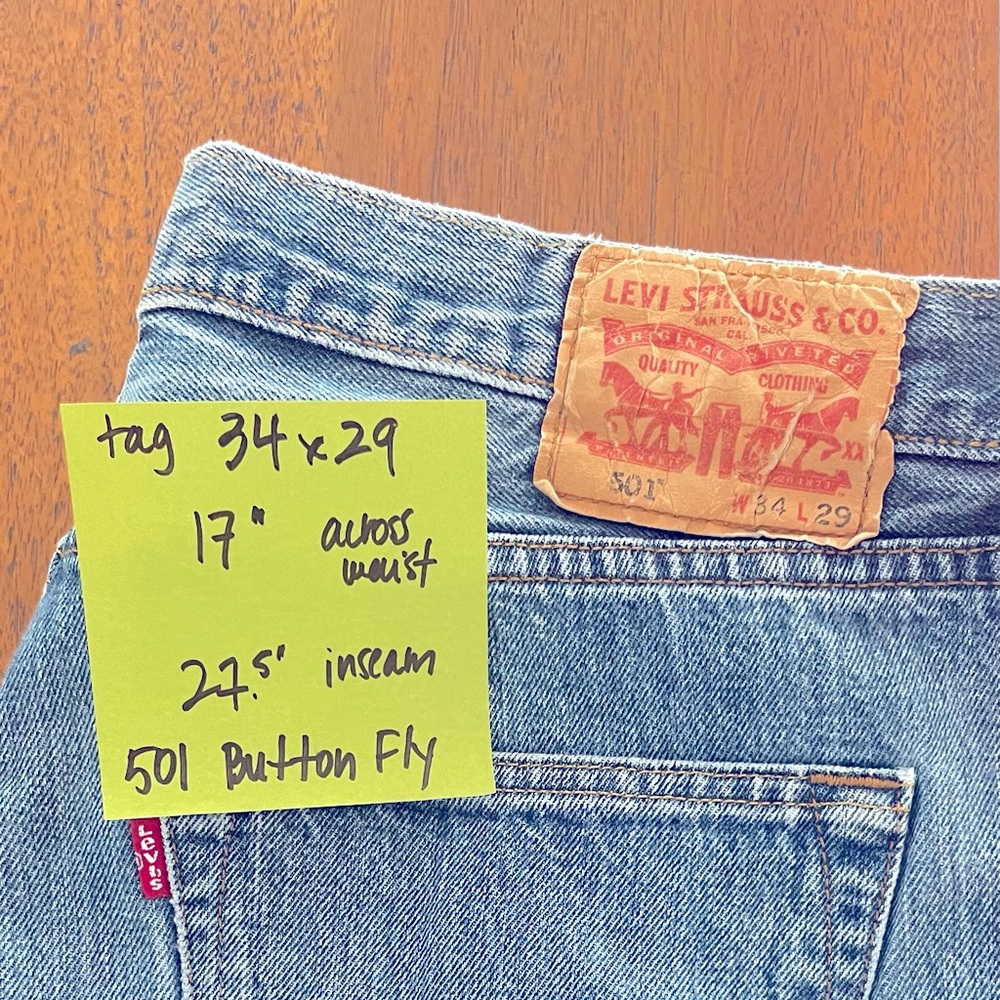 tag 34 x 29
17" across
waist
27.5" inseam
501 Button Fly
LEVI STRAUSS & CO.
SAN FRANCISCO
CAL
ORIGINAL RIVETED
QUALITY CLOTHING
XX
501
W 34 L 29
LEVI'S